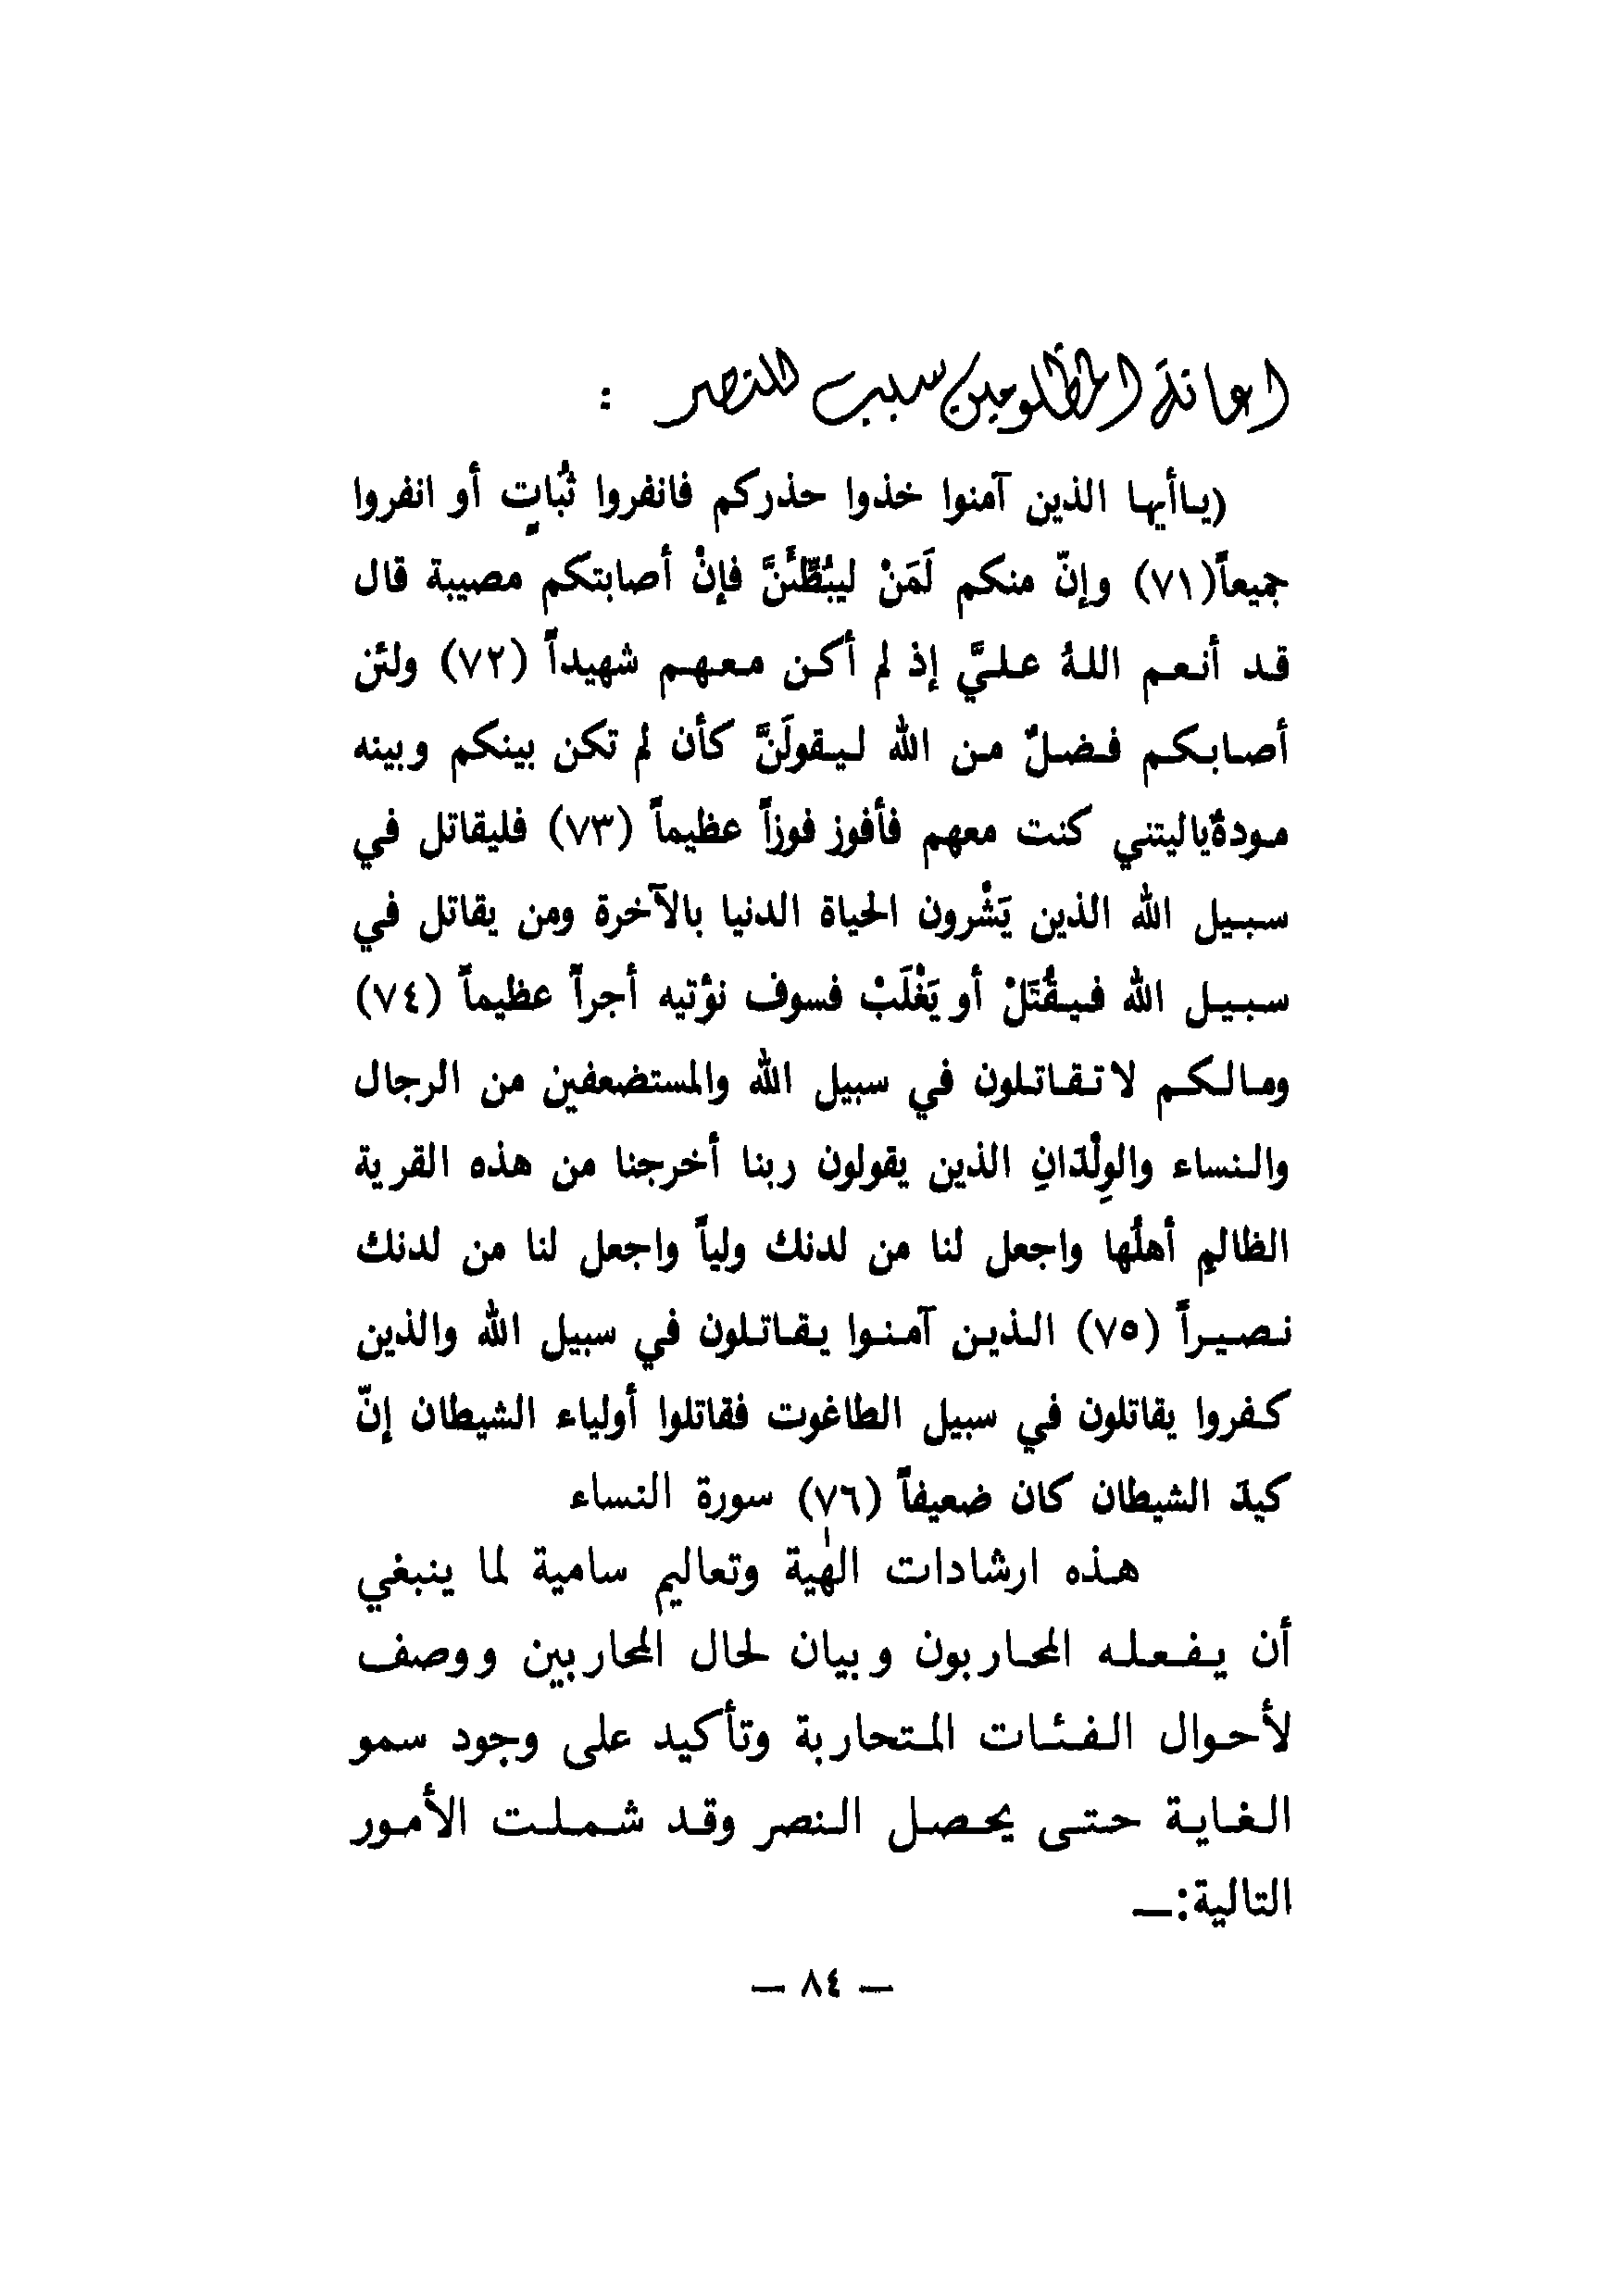 اعانة المظلومين سبب للنصر :
(ياأيها الذين آمنوا خذوا حذركم فانفروا ثُباتٍ أو انفروا
جميعاً(٧١) وإنّ منكم لَمَنْ ليبُطِّئَنَّ فإنْ أصابتكم مصيبة قال
قد أنعم اللهُ عليَّ إذ لم أكن معهم شهيداً (٧٢) ولئن
أصابكم فضلٌ من الله ليقولَنَّ كأن لم تكن بينكم وبينه
مودةٌياليتني كنت معهم فأفوز فوزاً عظيماً (٧٣) فليقاتل في
سبيل الله الذين يَشْرون الحياة الدنيا بالآخرة ومن يقاتل في
سبيل الله فيقُتَلْ أو يَغْلَبْ فسوف نؤتيه أجراً عظيماً (٧٤)
ومالكم لا تقاتلون في سبيل الله والمستضعفين من الرجال
والنساء والوِلْدَانِ الذين يقولون ربنا أخرجنا من هذه القرية
الظالمِ أهلُها واجعل لنا من لدنك ولياً واجعل لنا من لدنك
نصيراً (٧٥) الذين آمنوا يقاتلون في سبيل الله والذين
كفروا يقاتلون في سبيل الطاغوت فقاتلوا أولياء الشيطان إنّ
كيدَ الشيطان كان ضعيفاً (٧٦) سورة النساء
هذه ارشادات الهٰية وتعاليم سامية لما ينبغي
أن يفعله المحاربون وبيان لحال المحاربين ووصف
لأحوال الفئات المتحاربة وتأكيد على وجود سمو
الغاية حتى يحصل النصر وقد شملت الأمور
التالية:ـ
— ٨٤ —